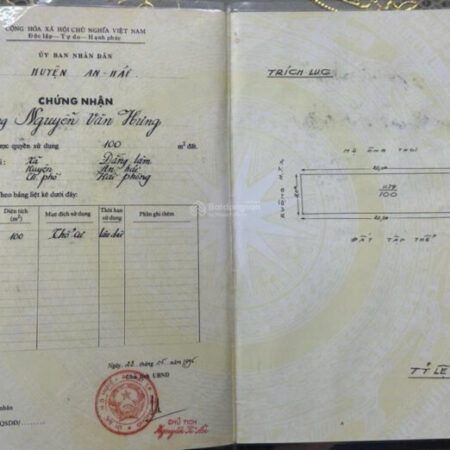 CỘNG HÒA XÃ HỘI CHỦ NGHĨA VIỆT NAM
Độc lập — Tự do — Hạnh phúc
ỦY BAN NHÂN DÂN
HUYỆN AN-HẢI
CHỨNG NHẬN
Nguyễn Văn Hưng
ược quyền sử dụng 100 m² đất.
Xã Đằng Lâm
Huyện An hải
T. phố Hải phòng
Theo bảng liệt kê dưới đây:
Diện tích (m²) Mục đích sử dụng Thời hạn sử dụng Phần ghi thêm
100 Thổ cư lâu dài
Ngày 22 tháng 05 năm
UBND
CHỦ TỊCH
nhân
QSDĐ/
TRÍCH LỤC
100
ĐẤT TẬP THỂ
TỶ LỆ
Batdongsan